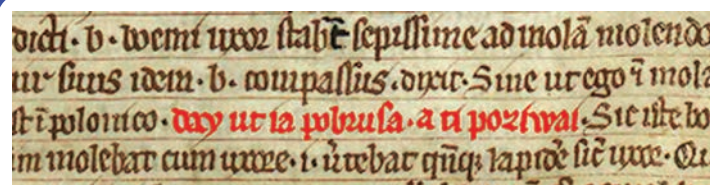 dicti · b · woemi uxor stabat sepissime ad molā molendo
ur suus idem · b · compassus · dixit · Sine ut ego ī mola
st ī polonico · day ut ia pobrusa · a ti poziwai · Sic iste bo
m molebat cum uxore · i · vtebat qn̄qꝫ lapidē sic̄ uxor · Q